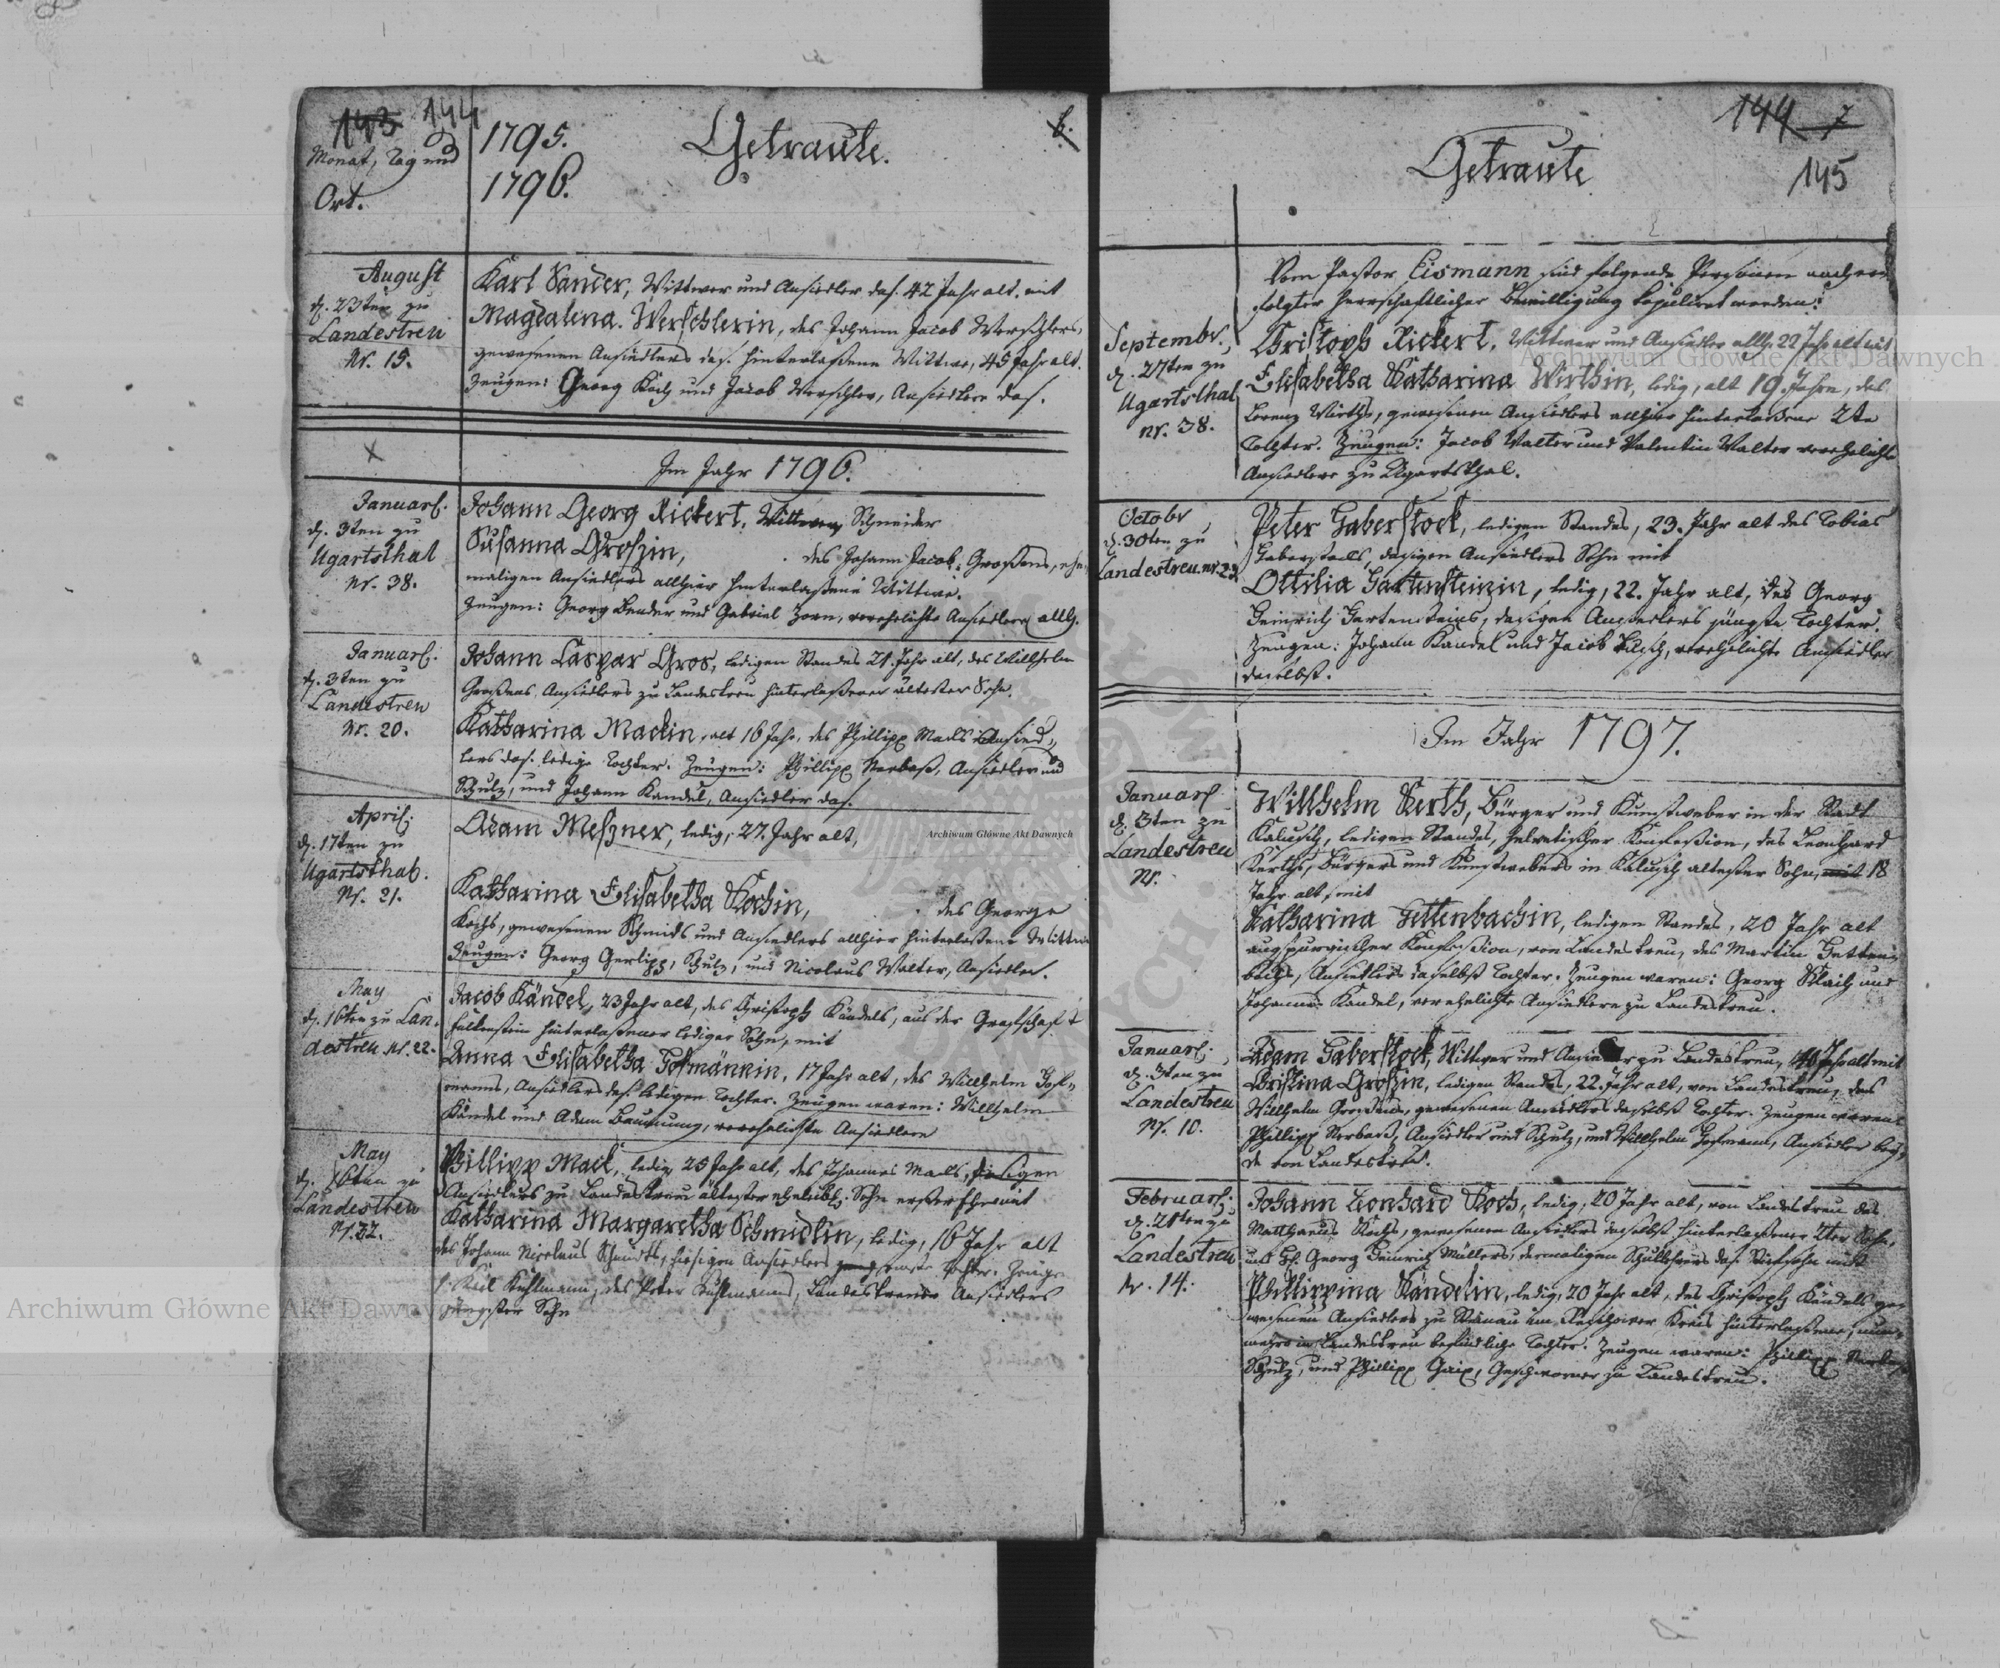 143 144
Monat, Tag und
Ort.
1795.
1796.
Getraute.
6.
August
d. 23ten zu
Landestreu
Nr. 15.
Karl Sander, Wittwer und Ansiedler das. 42 Jahr alt, mit
Magdalena Werschlerin, des Johann Jacob Werschlers,
gewesenen Ansiedlers das. hinterlaßene Wittwe, 45 Jahr alt.
Zeugen: Georg Koch und Jacob Werschler, Ansiedlere das.
Im Jahr 1796.
Januar.
d. 3ten zu
Ugartsthal
Nr. 38.
Johann Georg Rickert, Wittwer Schneider
Susanna Großin, des Johann Jacob Großens, ehe
maligen Ansiedlers allhier hinterlaßene Wittwe.
Zeugen: Georg Bender und Gabriel Zorn, verehelichte Ansiedlere allh.
Januar.
d. 3ten zu
Landestreu
Nr. 20.
Johann Caspar Gros, ledigen Standes 21. Jahr alt, des Willhelm
Großens Ansiedlers zu Landestreu hinterlaßener ältester Sohn.
Katharina Mackin, alt 16 Jahr, des Phillipp Macks Ansied„
lers das. ledige Tochter. Zeugen: Phillipp Nerbaß, Ansiedler und
Schulz, und Johann Kandel, Ansiedler das.
April.
d. 17ten zu
Ugartsthal.
Nr. 21.
Adam Meßner, ledig, 27. Jahr alt,
Katharina Elisabetha Kochin, des George
Kochs, gewesenen Schmids und Ansiedlers allhier hinterlaßene Wittwe
Zeugen: Georg Gerlipp, Schulz, und Nicolaus Walter, Ansiedler.
May
d. 16ten zu Lan„
destreu Nr. 22.
Jacob Kändel, 23 Jahr alt, des Christoph Kändels, aus der Grafschaft
Falkenstein hinterlaßener lediger Sohn, mit
Anna Elisabetha Hoffmännin, 17 Jahr alt, des Willhelm Hof„
manns, Ansiedlers das. ledigen Tochter. Zeugen waren: Willhelm
Kändel und Adam verehelichte Ansiedlere
May
d. 16ten zu
Landestreu
Nr. 32.
Phillipp Mack, ledig 25 Jahr alt, des Johannes Macks, hiesigen
Ansiedlers zu Landestreu ältester Sohn erster Ehe mit
Katharina Margaretha Schmidtin, ledig, 16 Jahr alt
des Johann Nicolaus Schmidts, hiesigen Ansiedlers Tochter. Zeuge
Kuhlmann, des Peter Kuhlmanns, Landestreuer Ansiedlers
jüngster Sohn
144 7
145
Getraute
Vom Pastor Eismann sind folgende Personen nach er„
folgter herrschaftlicher Bewilligung kopuliret worden:
Septembr.
d. 27ten zu
Ugartsthal
Nr. 38.
Christoph Rickert, Wittwer und Ansiedler allh. 22 Jahr alt mit
Elisabetha Katharina Wirthin, ledig, alt 19. Jahre, des
Lorenz Wirths, gewesenen Ansiedlers allhier hinterlaßene 2te
Tochter. Zeugen: Jacob Walter und Valentin Walter verehelichte
Ansiedlere zu Ugartsthal.
Octobr
d. 30ten zu
Landestreu Nr. 23
Peter Haberstock, ledigen Standes, 23. Jahr alt des Tobias
Haberstocks, dasigen Ansiedlers Sohn mit
Ottilia Hartensteinin, ledig, 22. Jahr alt, des Georg
Heinrich Hartensteins, dasigen Ansiedlers jüngste Tochter.
Zeugen: Johann Kandel und Jacob verehelichte Ansiedler
daselbst.
Im Jahr 1797.
Januar.
d. 3ten zu
Landestreu
Nr.
Willhelm Kerth, Bürger und Kunstweber in der Stadt
Kalusch, ledigen Standes, helvetischer Konfeßion, des Leonhard
Kerths, Bürgers und Kunstwebers in Kalusch ältester Sohn, mit 18
Jahr alt, mit
Katharina Fettenbachin, ledigen Standes, 20 Jahr alt
augspurgischer Konfeßion, von Landestreu, des Martin Fetten„
bachs, Ansiedlers daselbst Tochter. Zeugen waren: Georg und
Johannes Kandel, verehelichte Ansiedlere zu Landestreu.
Januar.
d. 3ten zu
Landestreu
Nr. 10.
Adam Haberstock, Wittwer und Ansiedler zu Landestreu, 40 Jahr alt mit
Christina Großin, ledigen Standes, 22 Jahr alt, von Landestreu, des
Willhelm Großens, gewesenen Ansiedlers daselbst Tochter. Zeugen waren:
Phillipp Nerbaß, Ansiedler und Schulz, und Willhelm Hofmann, Ansiedler bey„
de von Landestreu.
Februar.
d. 21ten zu
Landestreu
Nr. 14.
Johann Leonhard Koch, ledig, 20 Jahr alt, von Landestreu des
Matthäus Kochs, gewesenen Ansiedlers daselbst hinterlaßener 2ter Sohn,
und H. Georg Heinrich Müllers, dermaligen Schullehrers das. Stiefsohn mit
Phillippina Kändelin, ledig, 20 Jahr alt, des Christoph Kändels ge„
wesenen Ansiedlers zu im Kreis hinterlaßene, nun„
mehro in Landestreu befindliche Tochter. Zeugen waren: Phillipp Nerbaß
Schulz, und Phillipp Geschworner zu Landestreu.
Archiwum Główne Akt Dawnych
Archiwum Główne Akt Dawnych
Archiwum Główne Akt Dawnych